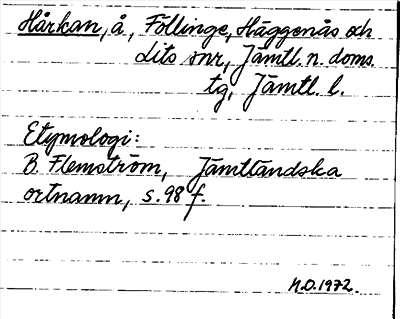 Hårkan, å, Föllinge, Häggenås och
Lits snr, Jämtl. n. doms.
tg, Jämtl. l.
Etymologi:
B. Flemström, Jämtländska
ortnamn, s. 98 f.
M.O. 1972.